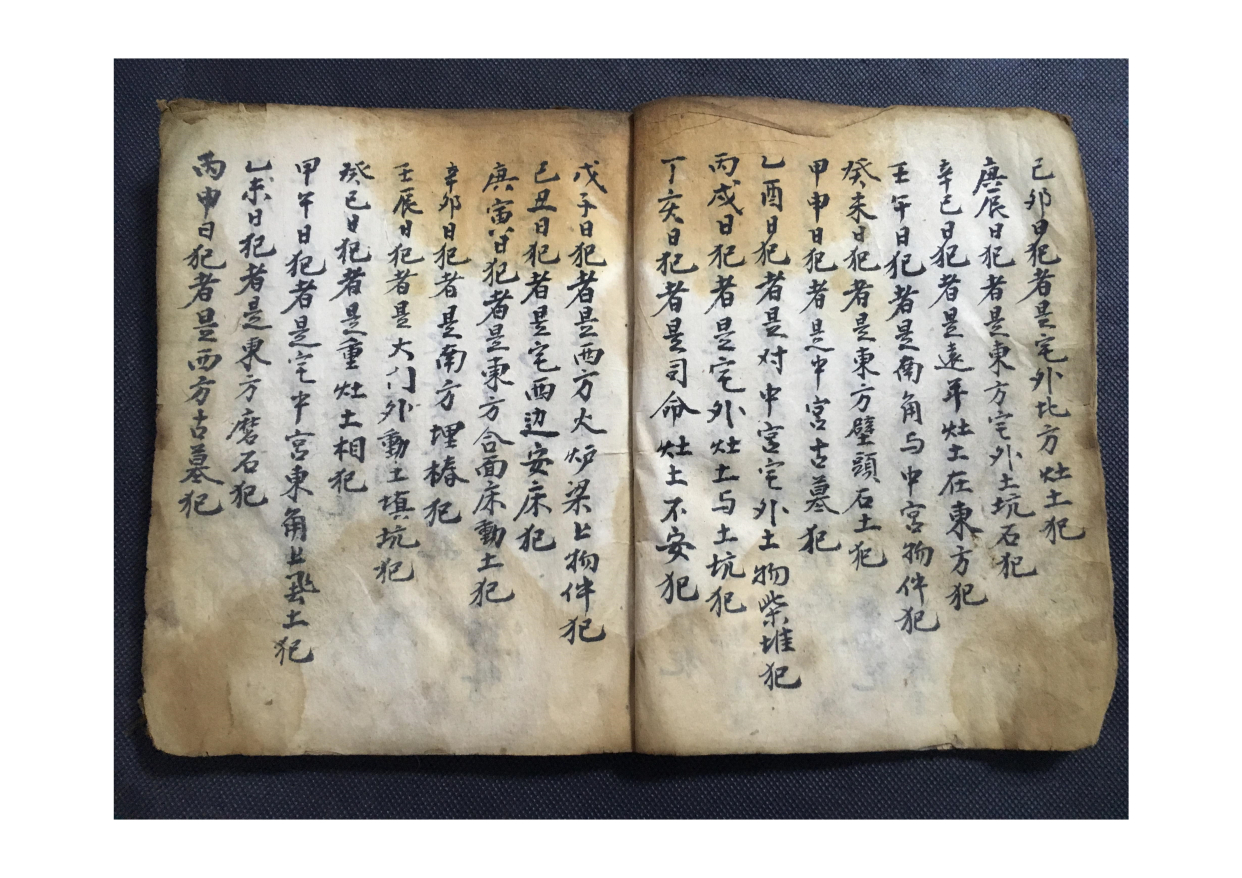 己卯日犯者是宅外北方灶土犯
庚辰日犯者是東方宅外土坑石犯
辛巳日犯者是遠年灶土在東方犯
壬午日犯者是南角与中宮物件犯
癸未日犯者是東方壁頭石土犯
甲申日犯者是中宮古墓犯
乙酉日犯者是对中宮宅外土物柴堆犯
丙戌日犯者是宅外灶土与土坑犯
丁亥日犯者是司命灶土不安犯
戊子日犯者是西方火炉梁上物件犯
己丑日犯者是宅西边安床犯
庚寅日犯者是東方合面床動土犯
辛卯日犯者是南方埋樁犯
壬辰日犯者是大门外動土填坑犯
癸巳日犯者是重灶土相犯
甲午日犯者是宅中宮東角上土犯
乙未日犯者是東方磨石犯
丙申日犯者是西方古墓犯